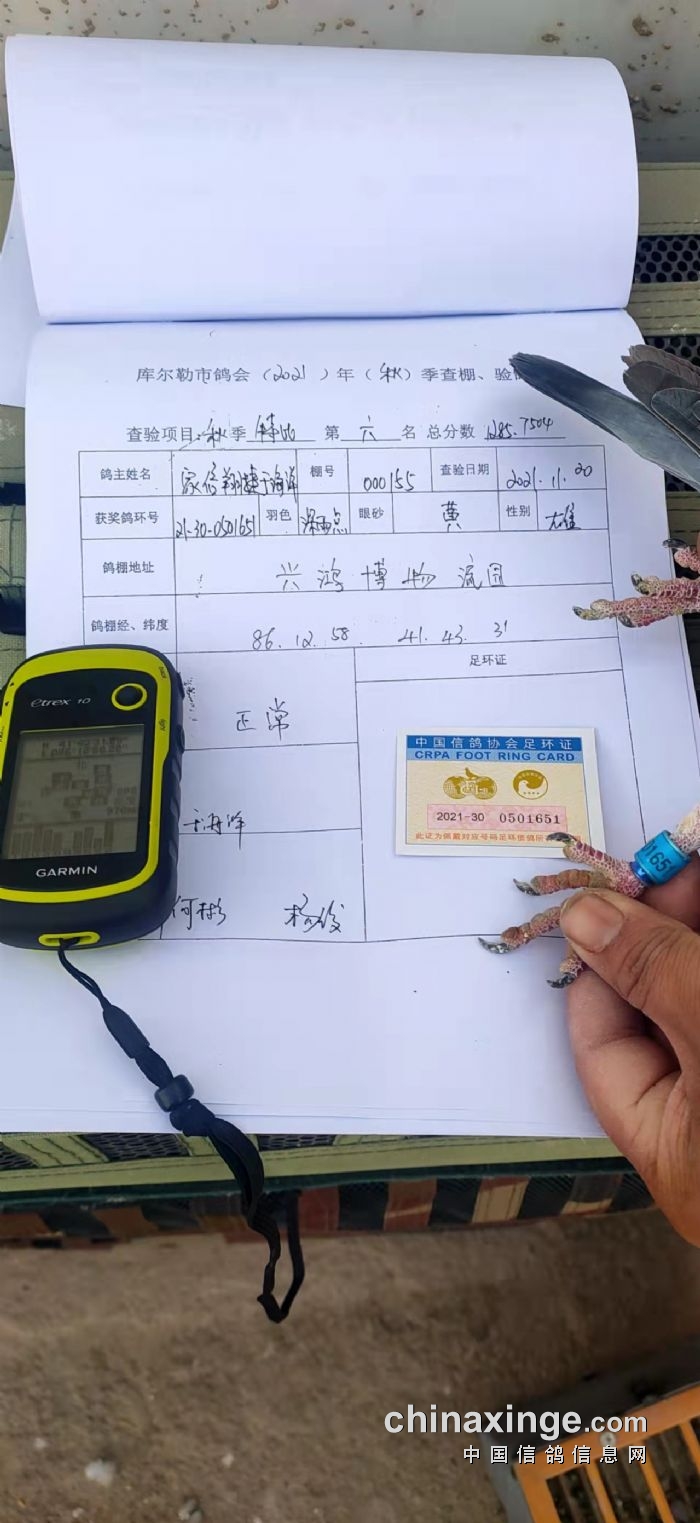 库尔勒市鸽会（2021）年（秋）季查棚、验
查验项目：秋季 特比 第 六 名 总分数 1285.7504
鸽主姓名 家信翔捷于海洋 棚号 000155 查验日期 2021.11.20
获奖鸽环号 21-30-0501651 羽色 深雨点 眼砂 黄 性别 雄
鸽棚地址 兴鸿博物流园
鸽棚经、纬度 86.12.58. 41.43.31
足环证
正常
于海洋
何彬
etrex 10
GARMIN
中国信鸽协会足环证
CRPA FOOT RING CARD
2021-30 0501651
此证为佩戴对应号码足环信鸽所
0165
chinaxinge.com
中国信鸽信息网